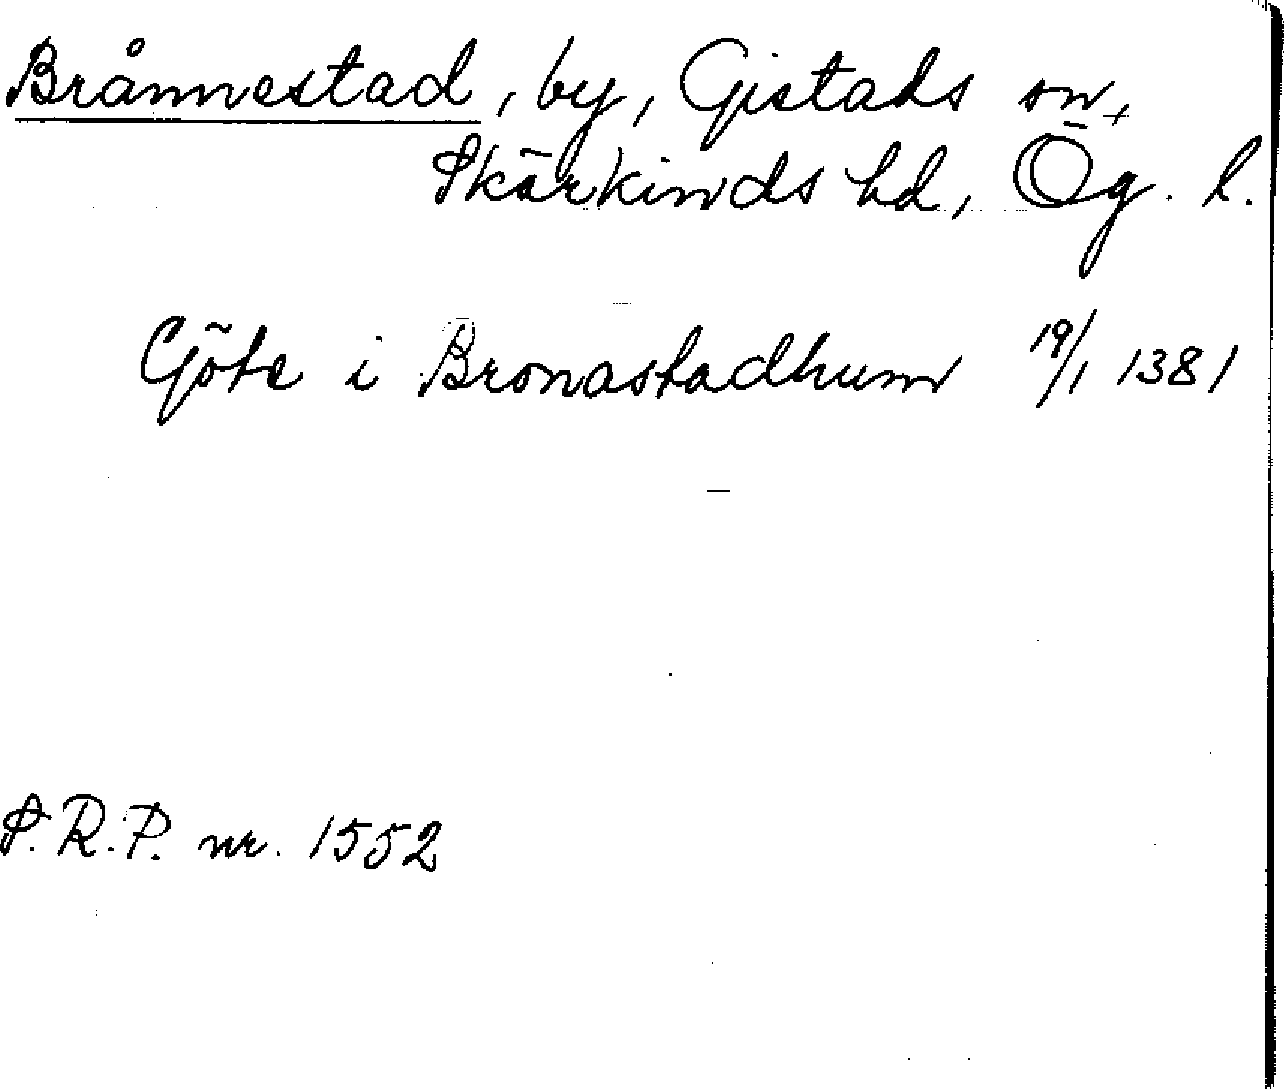 Brånnestad, by, Gistads sn,
Skärkinds hd, Ög. l.
Göte i Bronastadhum 19/1 1381
S.R.P. nr. 1552